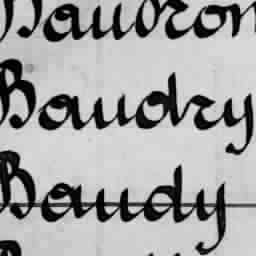 Baudron
Baudry
Baudy